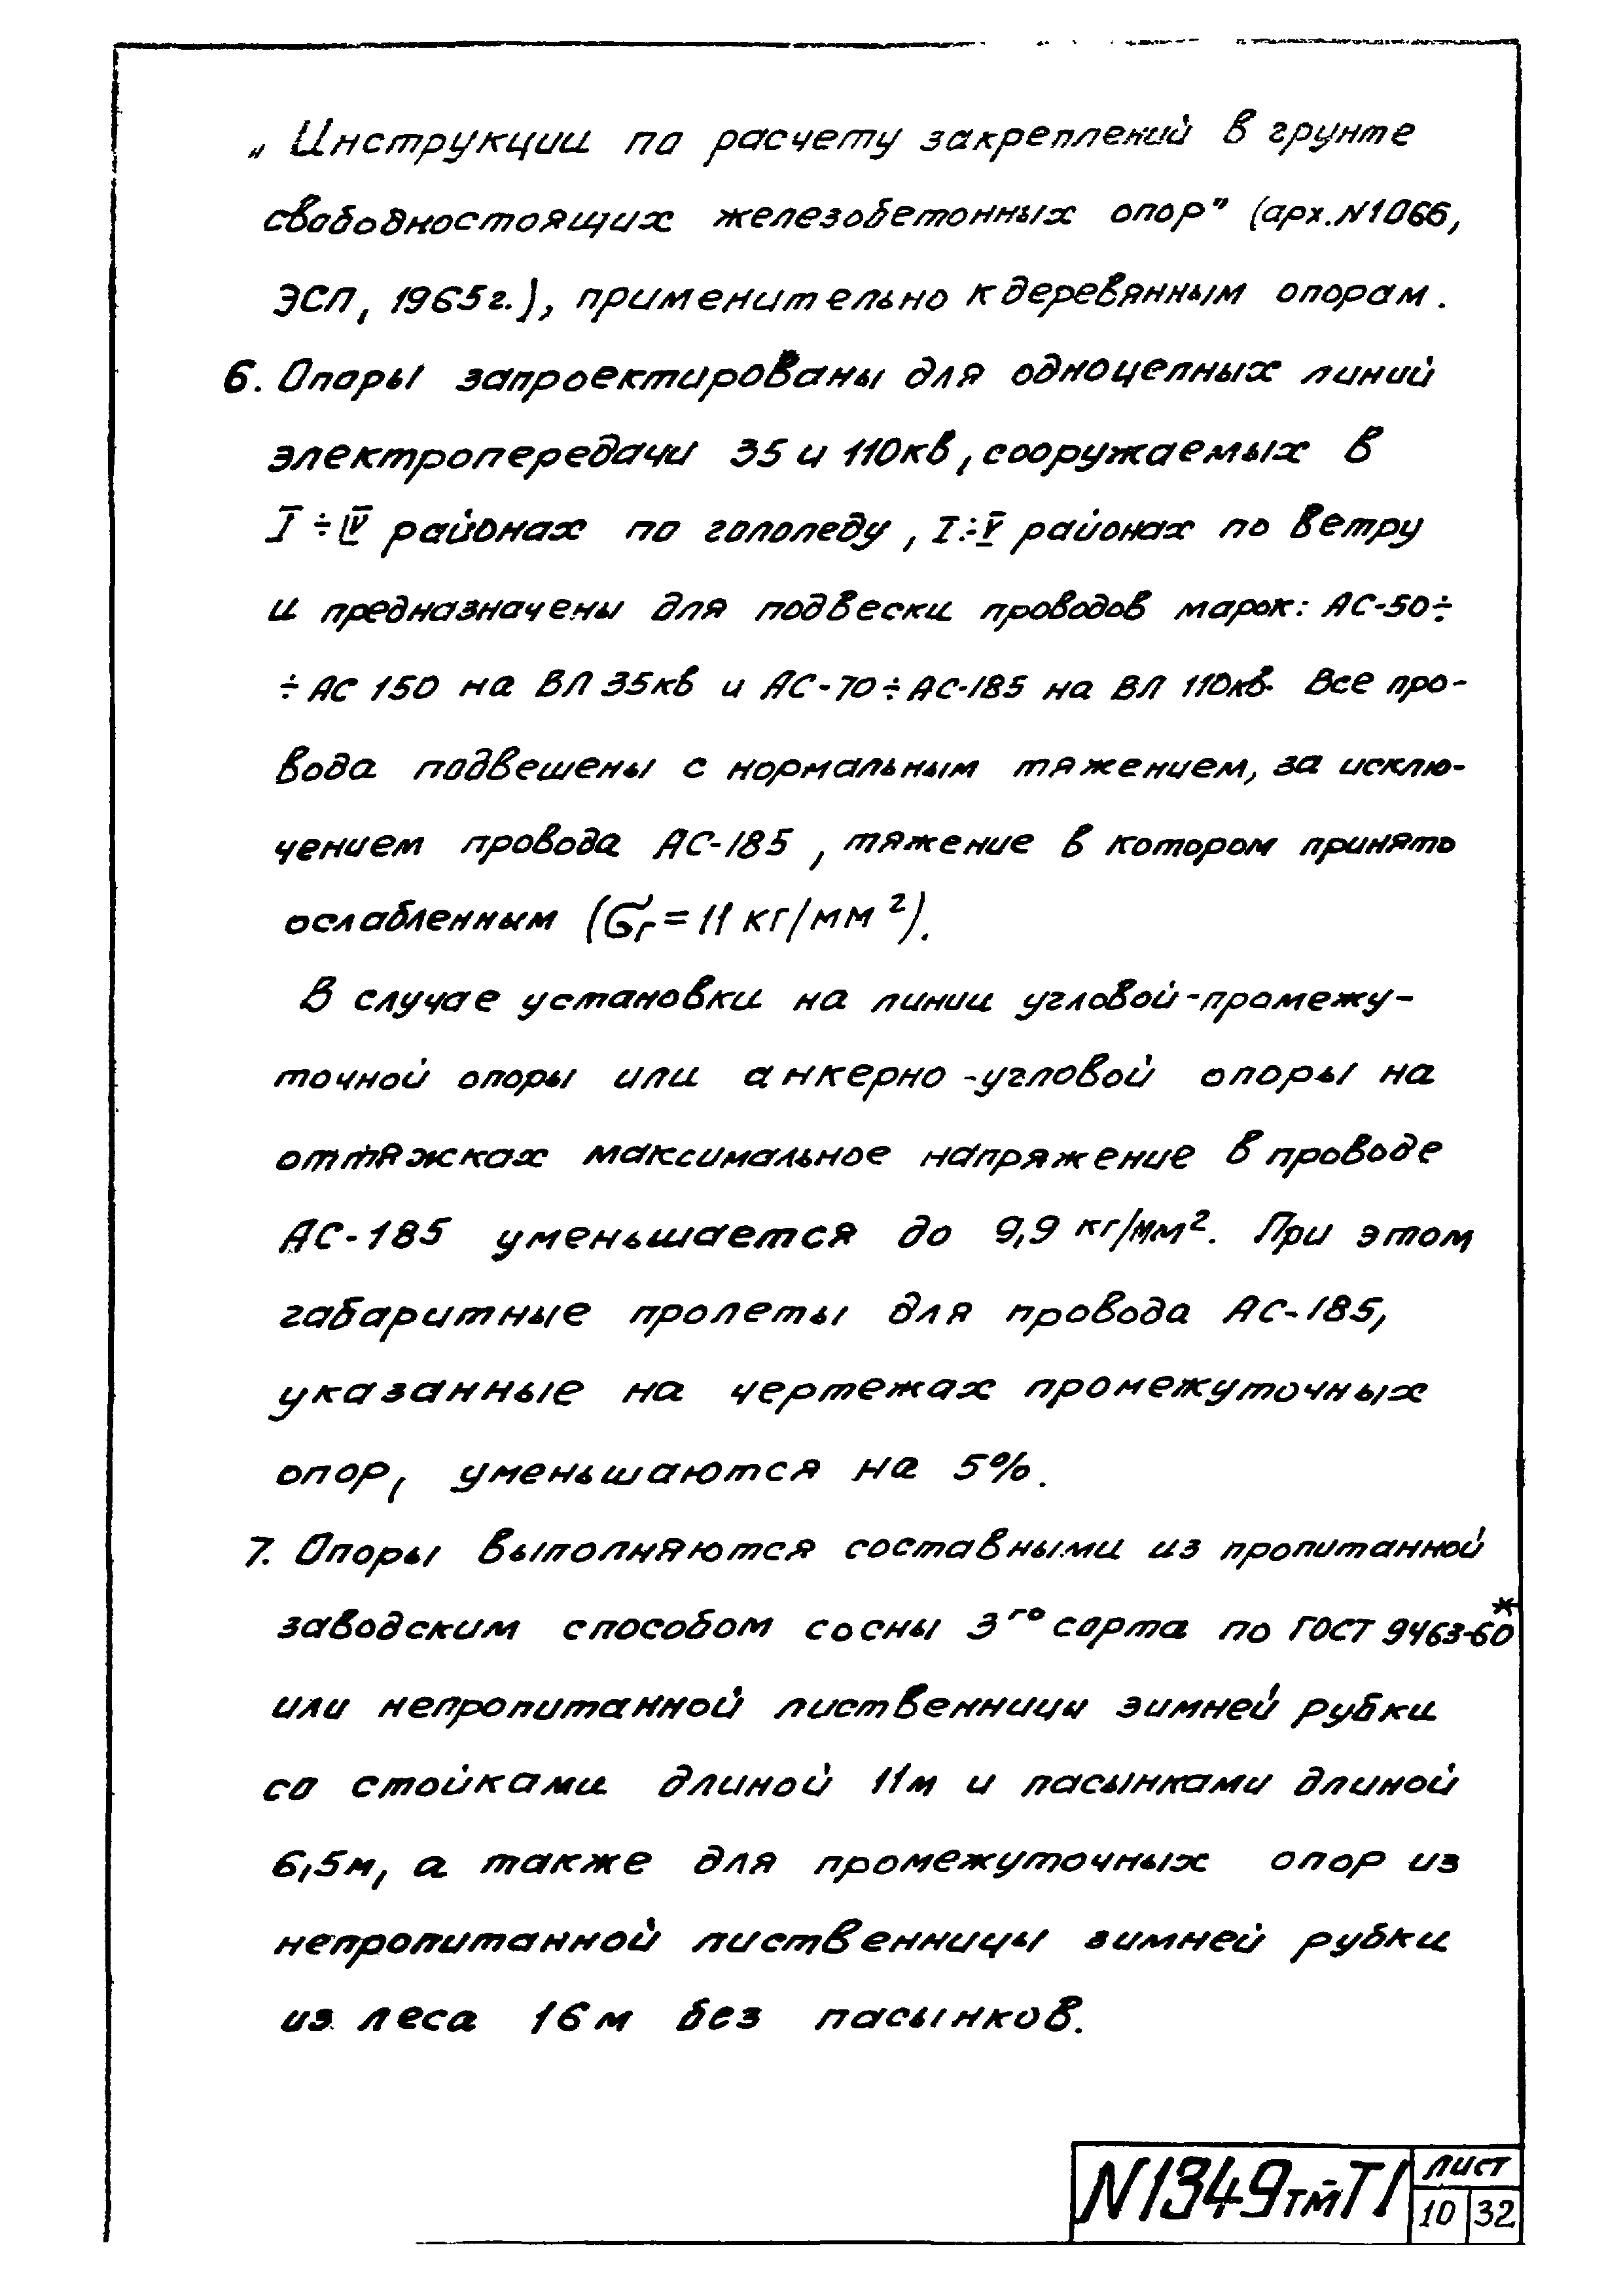 „Инструкции по расчету закреплений в грунте
свободностоящих железобетонных опор" (арх.N1066,
ЭСП, 1965г.), применительно к деревянным опорам.
6. Опоры запроектированы для одноцепных линий
электропередачи 35 и 110кв, сооружаемых в
I÷IV районах по гололеду, I÷V районах по ветру
и предназначены для подвески проводов марок: АС-50÷
÷АС 150 на ВЛ 35кв и АС-70÷АС-185 на ВЛ 110кв. Все про-
вода подвешены с нормальным тяжением, за исклю-
чением провода АС-185, тяжение в котором принято
ослабленным (σг=11 кг/мм²).
В случае установки на линии угловой-промежу-
точной опоры или анкерно-угловой опоры на
оттяжках максимальное напряжение в проводе
АС-185 уменьшается до 9,9 кг/мм². При этом
габаритные пролеты для провода АС-185,
указанные на чертежах промежуточных
опор, уменьшаются на 5%.
7. Опоры выполняются составными из пропитанной
заводским способом сосны 3го сорта по ГОСТ 9463-60*
или непропитанной лиственницы зимней рубки
со стойками длиной 11м и пасынками длиной
6,5м, а также для промежуточных опор из
непропитанной лиственницы зимней рубки
из леса 16м без пасынков.
N1349тм-Т1
лист
10 32